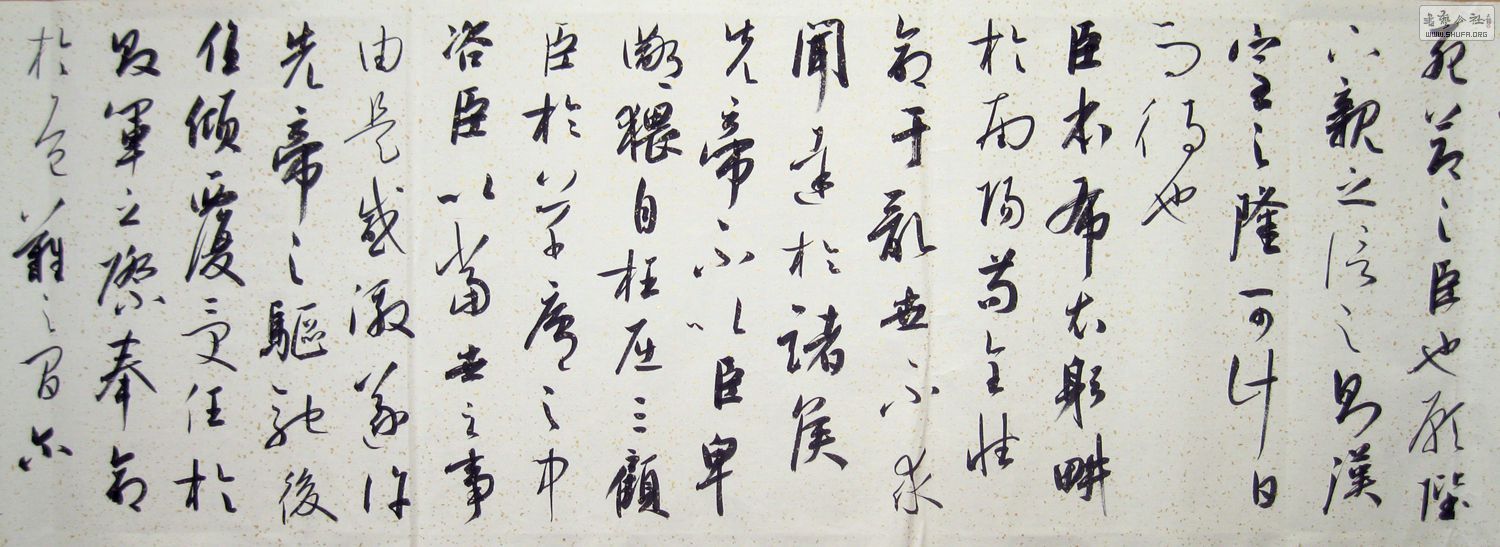 死節之臣也願陛
下親之信之則漢
室之隆可計日
而待也
臣本布衣躬畊
於南陽苟全性
命于亂世不求
聞達於諸侯
先帝不以臣卑
鄙猥自枉屈三顧
臣於草廬之中
咨臣以當世之事
由是感激遂許
先帝之驅馳後
值傾覆受任於
敗軍之際奉命
於危難之間尓
WWW.SHUFA.ORG